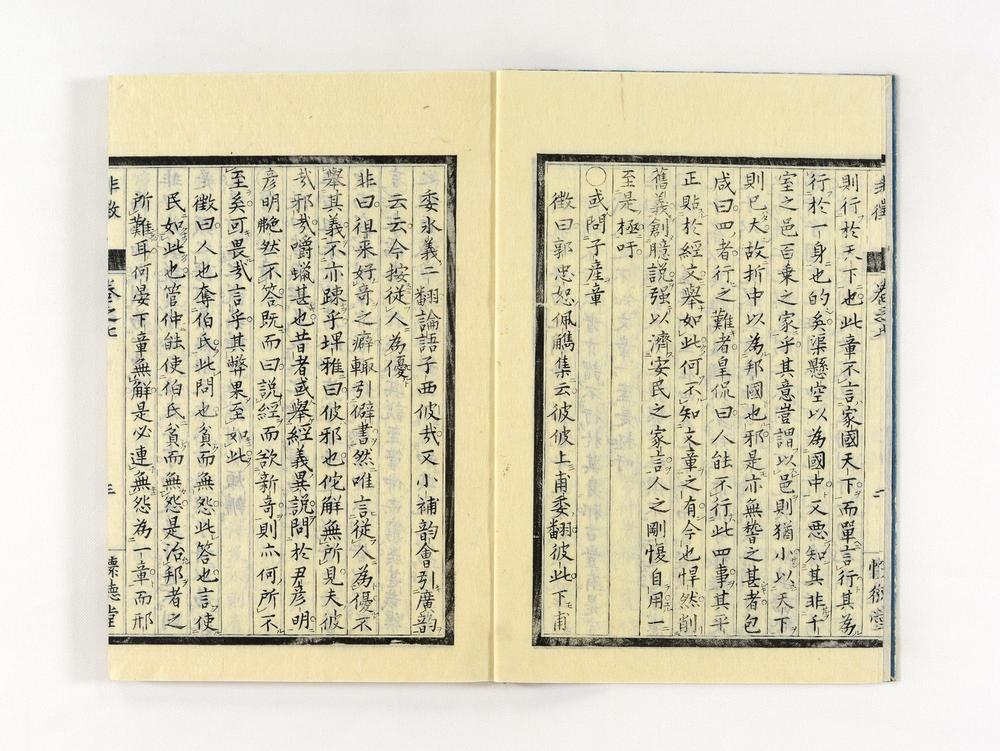 則行於天下也此章不言家國天下而單言行其為
行於一身也的矣渠懸空以為國中又惡知其非千
室之邑百乗之家乎其意豈謂以邑則猶小以天下
則已大故折中以為邦國也邪是亦無謷之甚者包
咸曰四者行之難者皇侃曰人能不行此四事其平
正貼於經文擧如此何不知文章之有今也悍然削
舊義創臆説强以濟安民之家言人之剛愎自用一
至是極吁
○或問子産章
徴曰郭忠恕佩觿集云彼彼上甫委翻彼此下甫
委永義二翻論語子西彼哉又小補韵會引廣韵
云云今按從人為優
非曰徂来好奇之癖輙引僻書然唯言從人為優不
擧其義不亦踈乎埤雅曰彼邪也佗解無所見夫彼
哉邪哉嚼蠟甚也昔者或擧經義異説問於尹彦明
彦明艴然不答既而曰説經而欲新奇則亦何所不
至矣可畏哉言乎其弊果至如此
徴曰人也奪伯氏此問也貧而無怨此答也言使
民如此也管仲能使伯氏貧而無怨是治邦者之
所難耳何晏下章無解是必連無怨為一章而邢
非徴
卷之七
三
懐徳堂